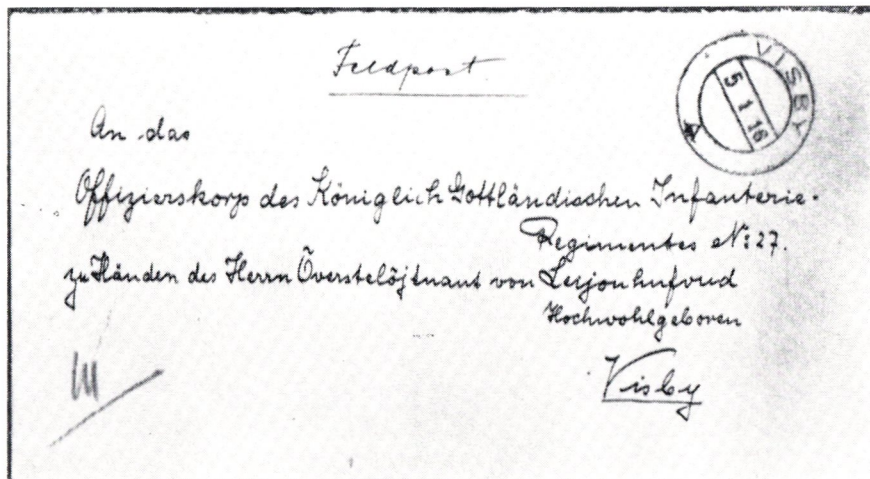 Feldpost
VISBY
5 1 16
An das
Offizierskorps des Königlich Gottländischen Infanterie-
Regimentes No: 27.
zu Händen des Herrn Överstelöjtnant von Leijonhufvud
Hochwohlgeboren
Visby